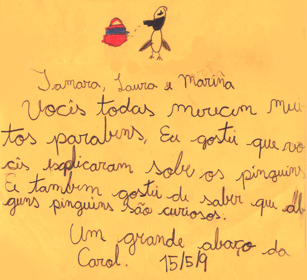 Tamara, Laura e Marina
Vocês todas merecem mui
tos parabens, Eu gostei que vo
cês explicaram sobe os pinguins
E tambem gostei de saber que alb
guns pinguins são curiosos.
Um grande abaço da
Carol. 15/5/9